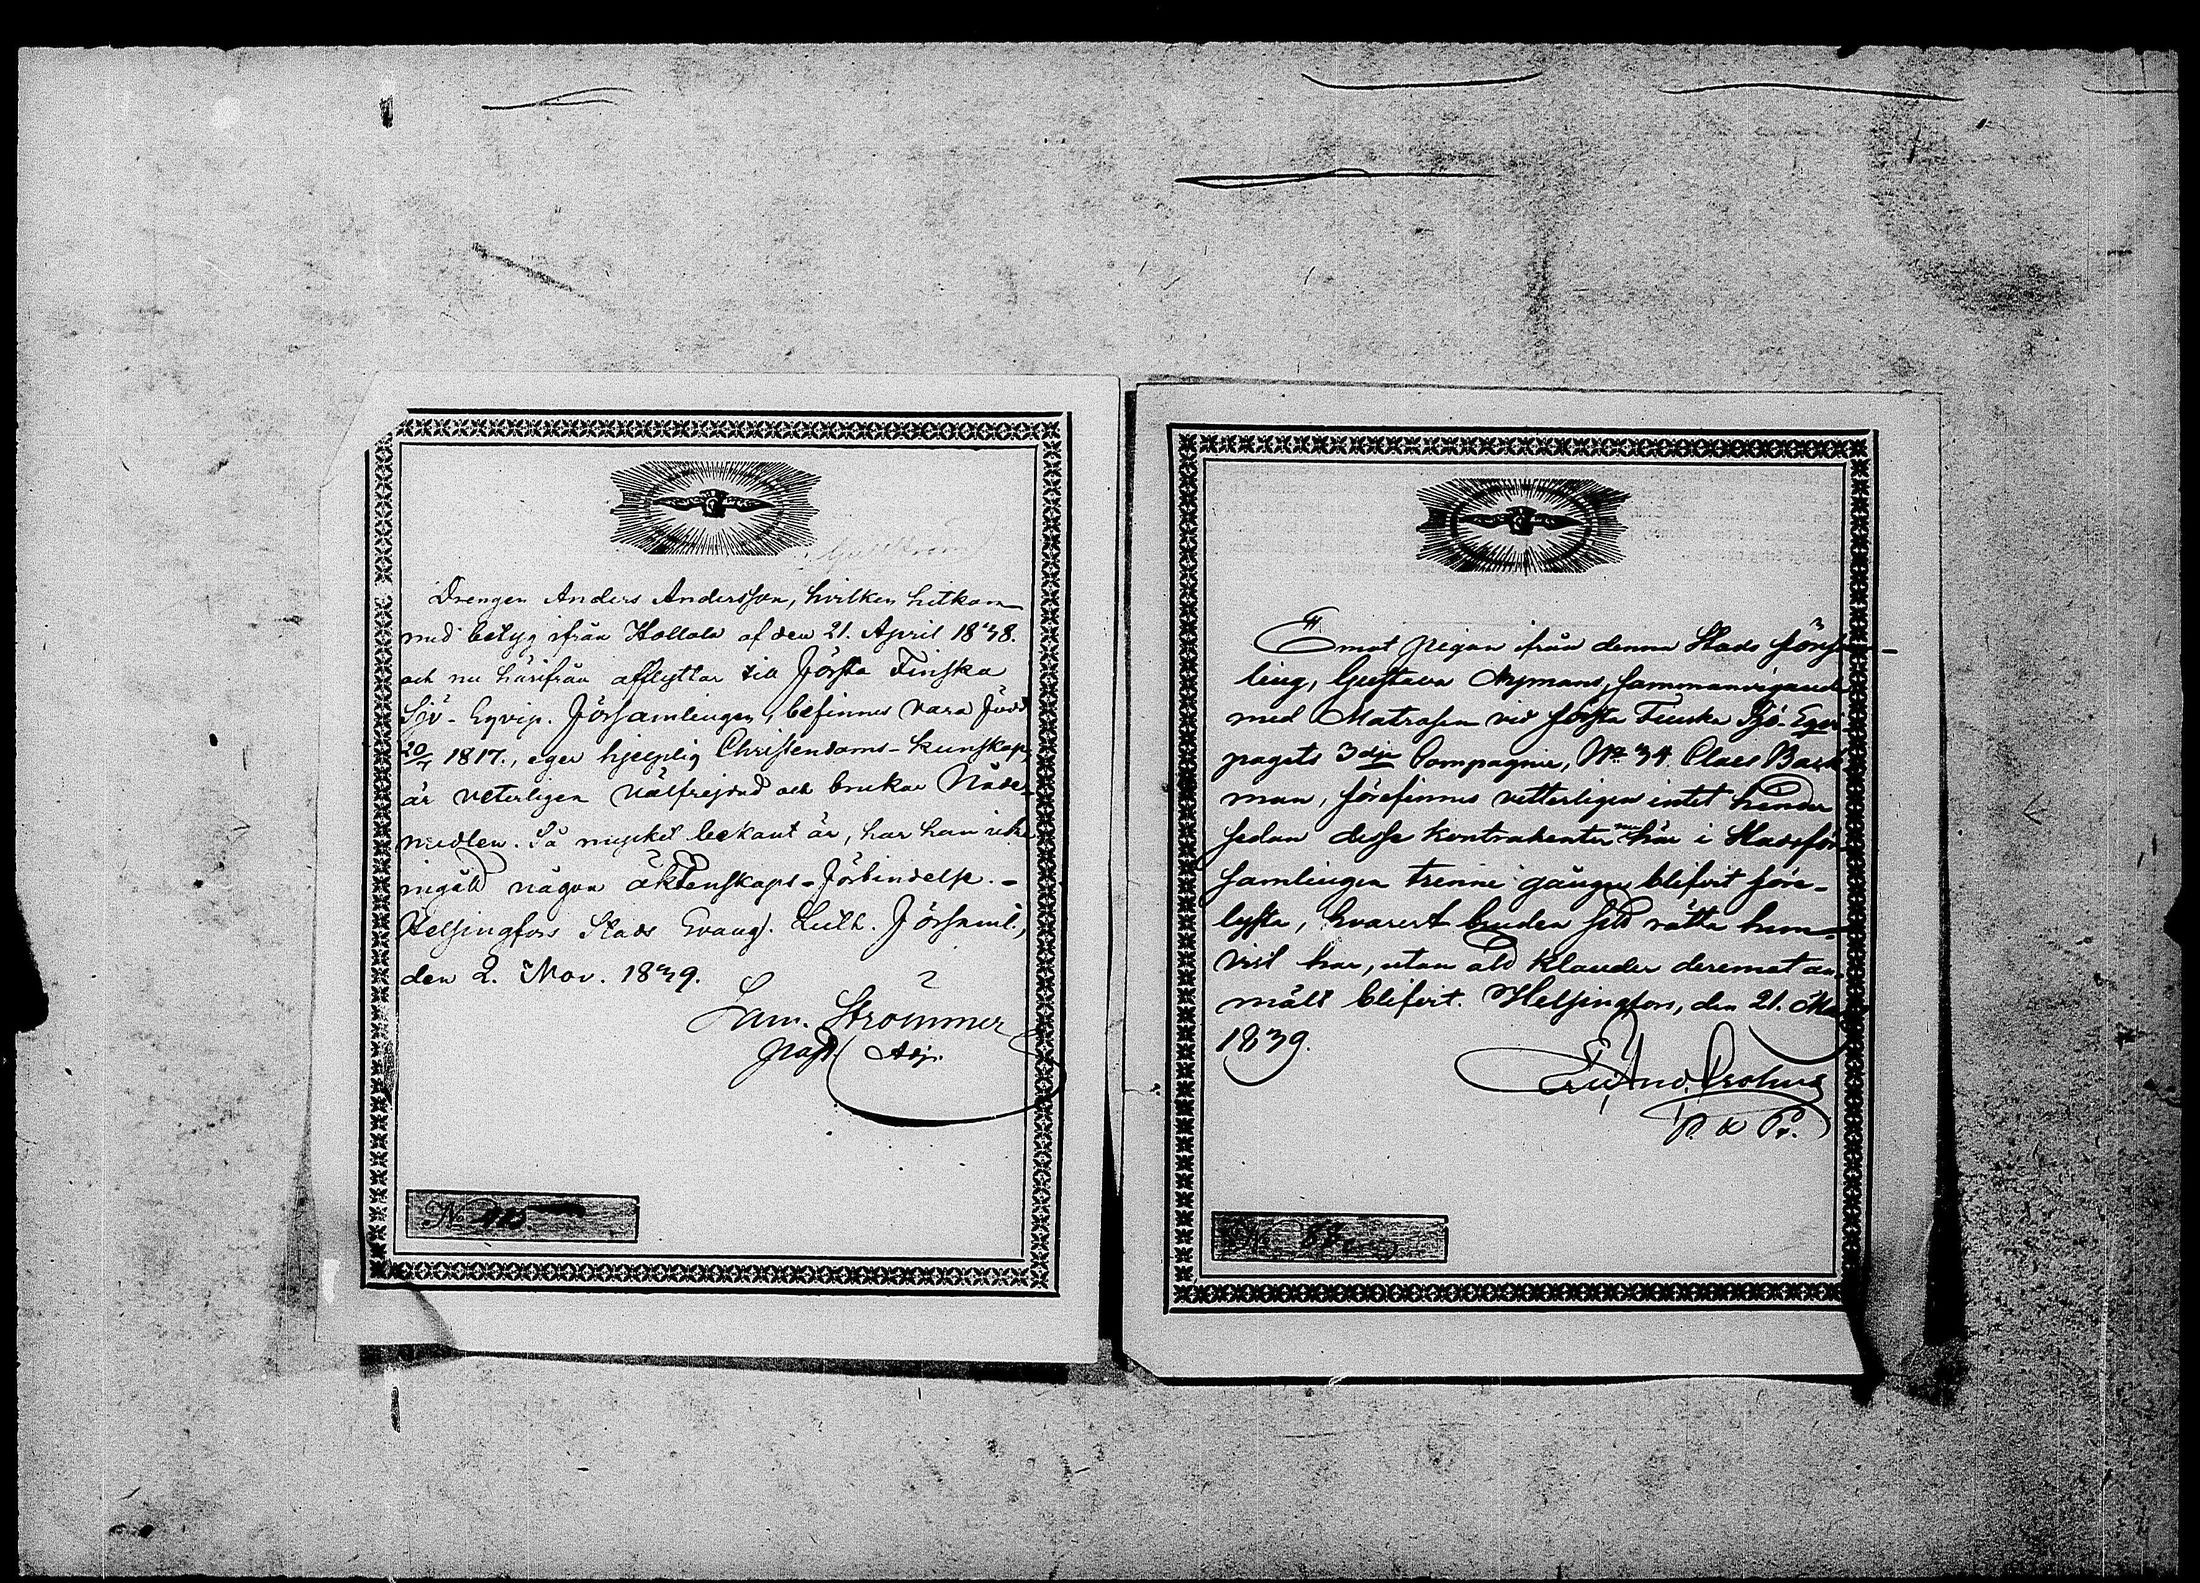 Drengen Anders Andersson, hvilken hitkom
med betyg ifrån Hollola af den 21. April 1838.
och nu härifrån afflyttar till Första Finska
Sjö-Eqvip. Församlingen, befinnes vara född
20/ 1817., eger hjelplig Christendoms-kunskap,
är veterligen välfrejdad och brukar Nåde-
medlen. Så mycket bekant är, har han icke
ingått någon äktenskaps-förbindelse.-
Helsingfors Stads Evang. Luth. Församl.,
den 2. Nov. 1839.
Sam. Strömmer
past. Adj.
No
Emot pigan ifrån denna Stads försam-
ling, Gustava Nymans, sammanvigande
med Matrosen vid första Finska Sjö-Eqvi-
pagets 3dje Compagnie, No 34 Claes Back-
man, förefinnes vetterligen intet hinder
sedan desse kontrahenter här i Stadsför-
samlingen trenne gånger blifvit före-
lysta, hvarest bruden sitt rätta hem-
vist har, utan att klander deremot an-
mält blifvit. Helsingfors, den 21. Ma
1839.
And. Crohns
No